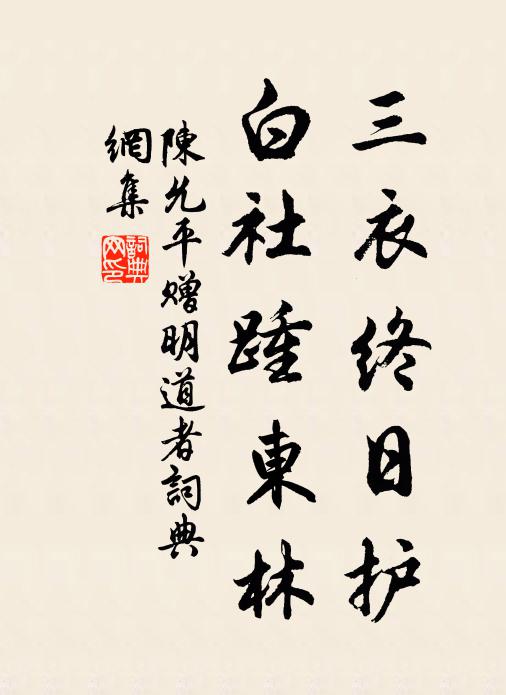 三衣终日护
白社踵東林
陳允平赠明道者詞典
網集
詞典网印